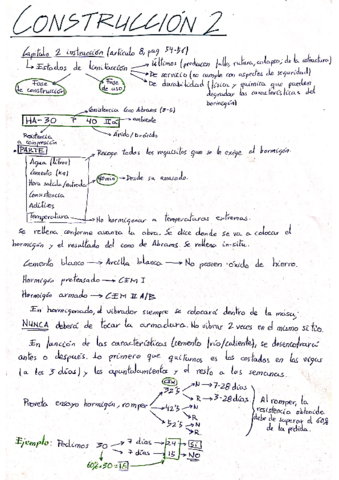 CONSTRUCCIÓN 2
Capítulo 2 instrucción (artículo 8, pag
Estados de limitación
Últimos (producen fallo, rotura, colapso, de la estructura)
De servicio (no cumple con aspectos de seguridad)
De durabilidad (física y química que pueden
degradar las características del
hormigón)
Fase de construcción
Fase de uso
Consistencia Cono Abrams
HA-30 P 40 IIa
ambiente
Árido
Resistencia a compresión
PARTE
Recoge todos los requisitos que se le exige al hormigón.
Agua (litros)
Cemento (Kg)
Hora salida/entrada
Desde su amasado.
Consistencia
Aditivos
Temperatura
No hormigonar a temperaturas extremas.
Se rellena conforme avanza la obra. Se dice donde se va a colocar el
hormigón y el resultado del cono de Abrams. Se rellena in-situ.
Cemento blanco → Arcilla blanca → No poseen óxido de hierro.
Hormigón pretensado → CEM I
Hormigón armado → CEM II A/B
En hormigonado, el vibrador siempre se colocará dentro de la masa;
NUNCA deberá de tocar la armadura. No vibrar 2 veces en el mismo sitio.
En función de las características (cemento frío/caliente), se desencofrará
antes o después. Lo primero que quitamos es los costados en las vigas
(a los 3 días) y los apuntalamientos y el resto a las semanas.
CEM
32'5
N → 7-28 días
R → 3-28 días
Probeta ensayo hormigón, romper
42'5
N
R
52'5
N
R
Al romper, la
resistencia obtenida
debe de superar el 60%
de la pedida.
Ejemplo: Pedimos 30
7 días → 24 → SI
7 días → 15 → NO